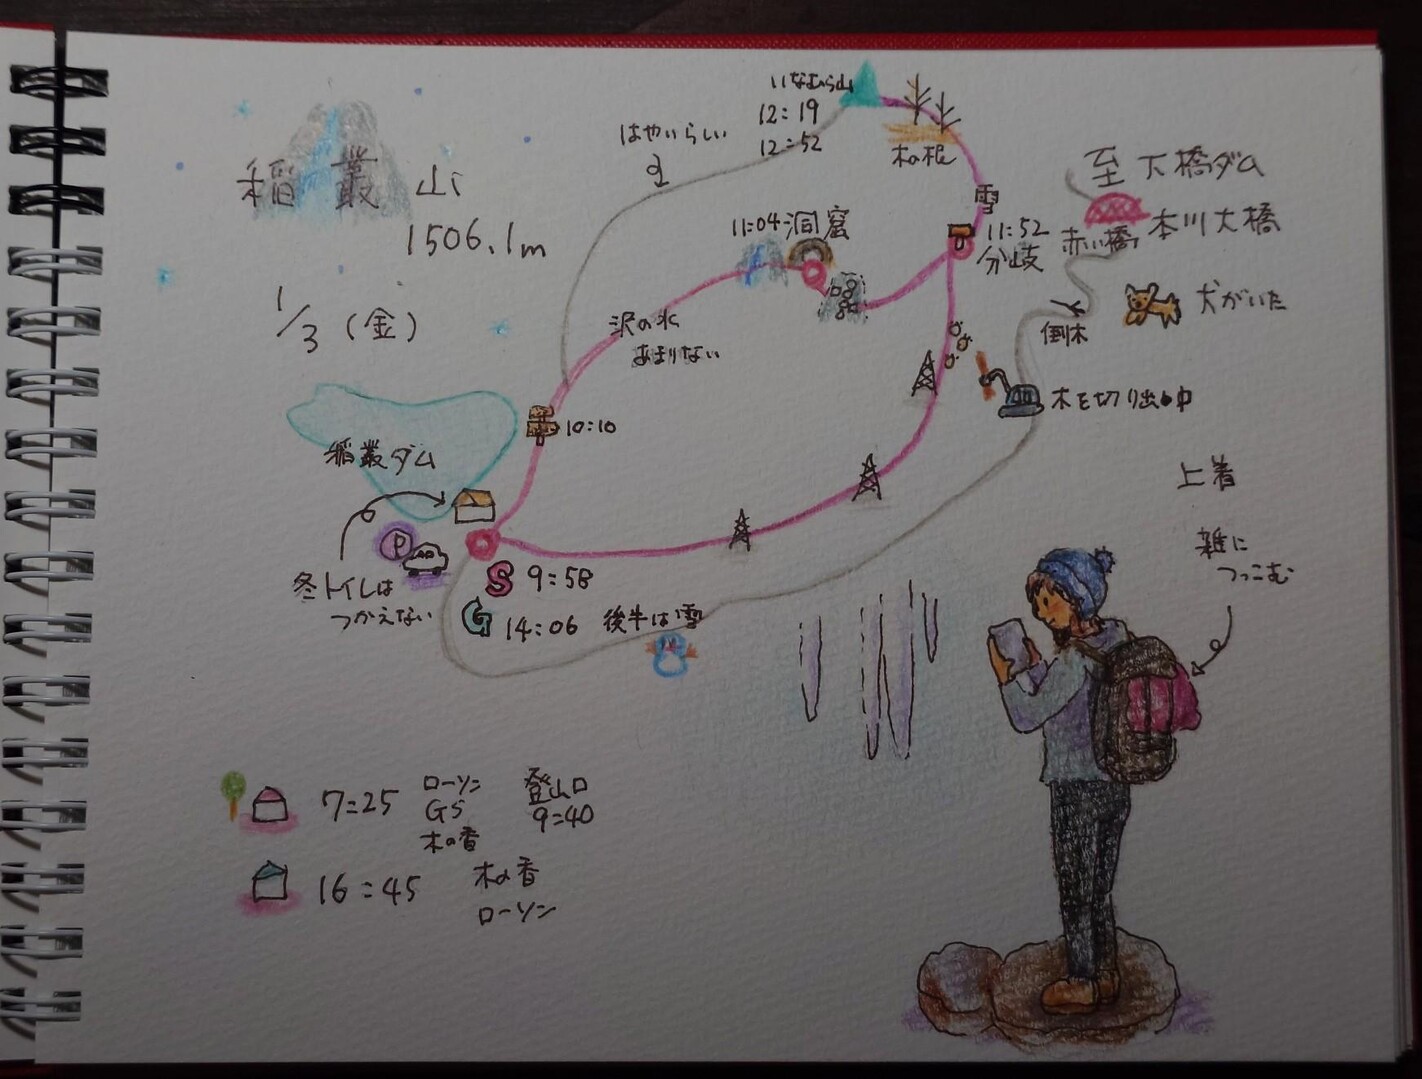 稲叢山
1506.1m
1/3(金)
いなむら山
12:19
12:52
はやいらしい
木の根
雪
11:52
分岐
11:04 洞窟
沢の水
あまりない
10:10
稲叢ダム
P
冬トイレは
つかえない
S 9:58
G 14:06 後半は雪
至 下橋ダム
赤い橋 本川大橋
犬がいた
倒木
木を切り出し中
上着
雑に
つっこむ
7:25 ローソン
GS
木の香
登山口
9:40
16:45 木の香
ローソン